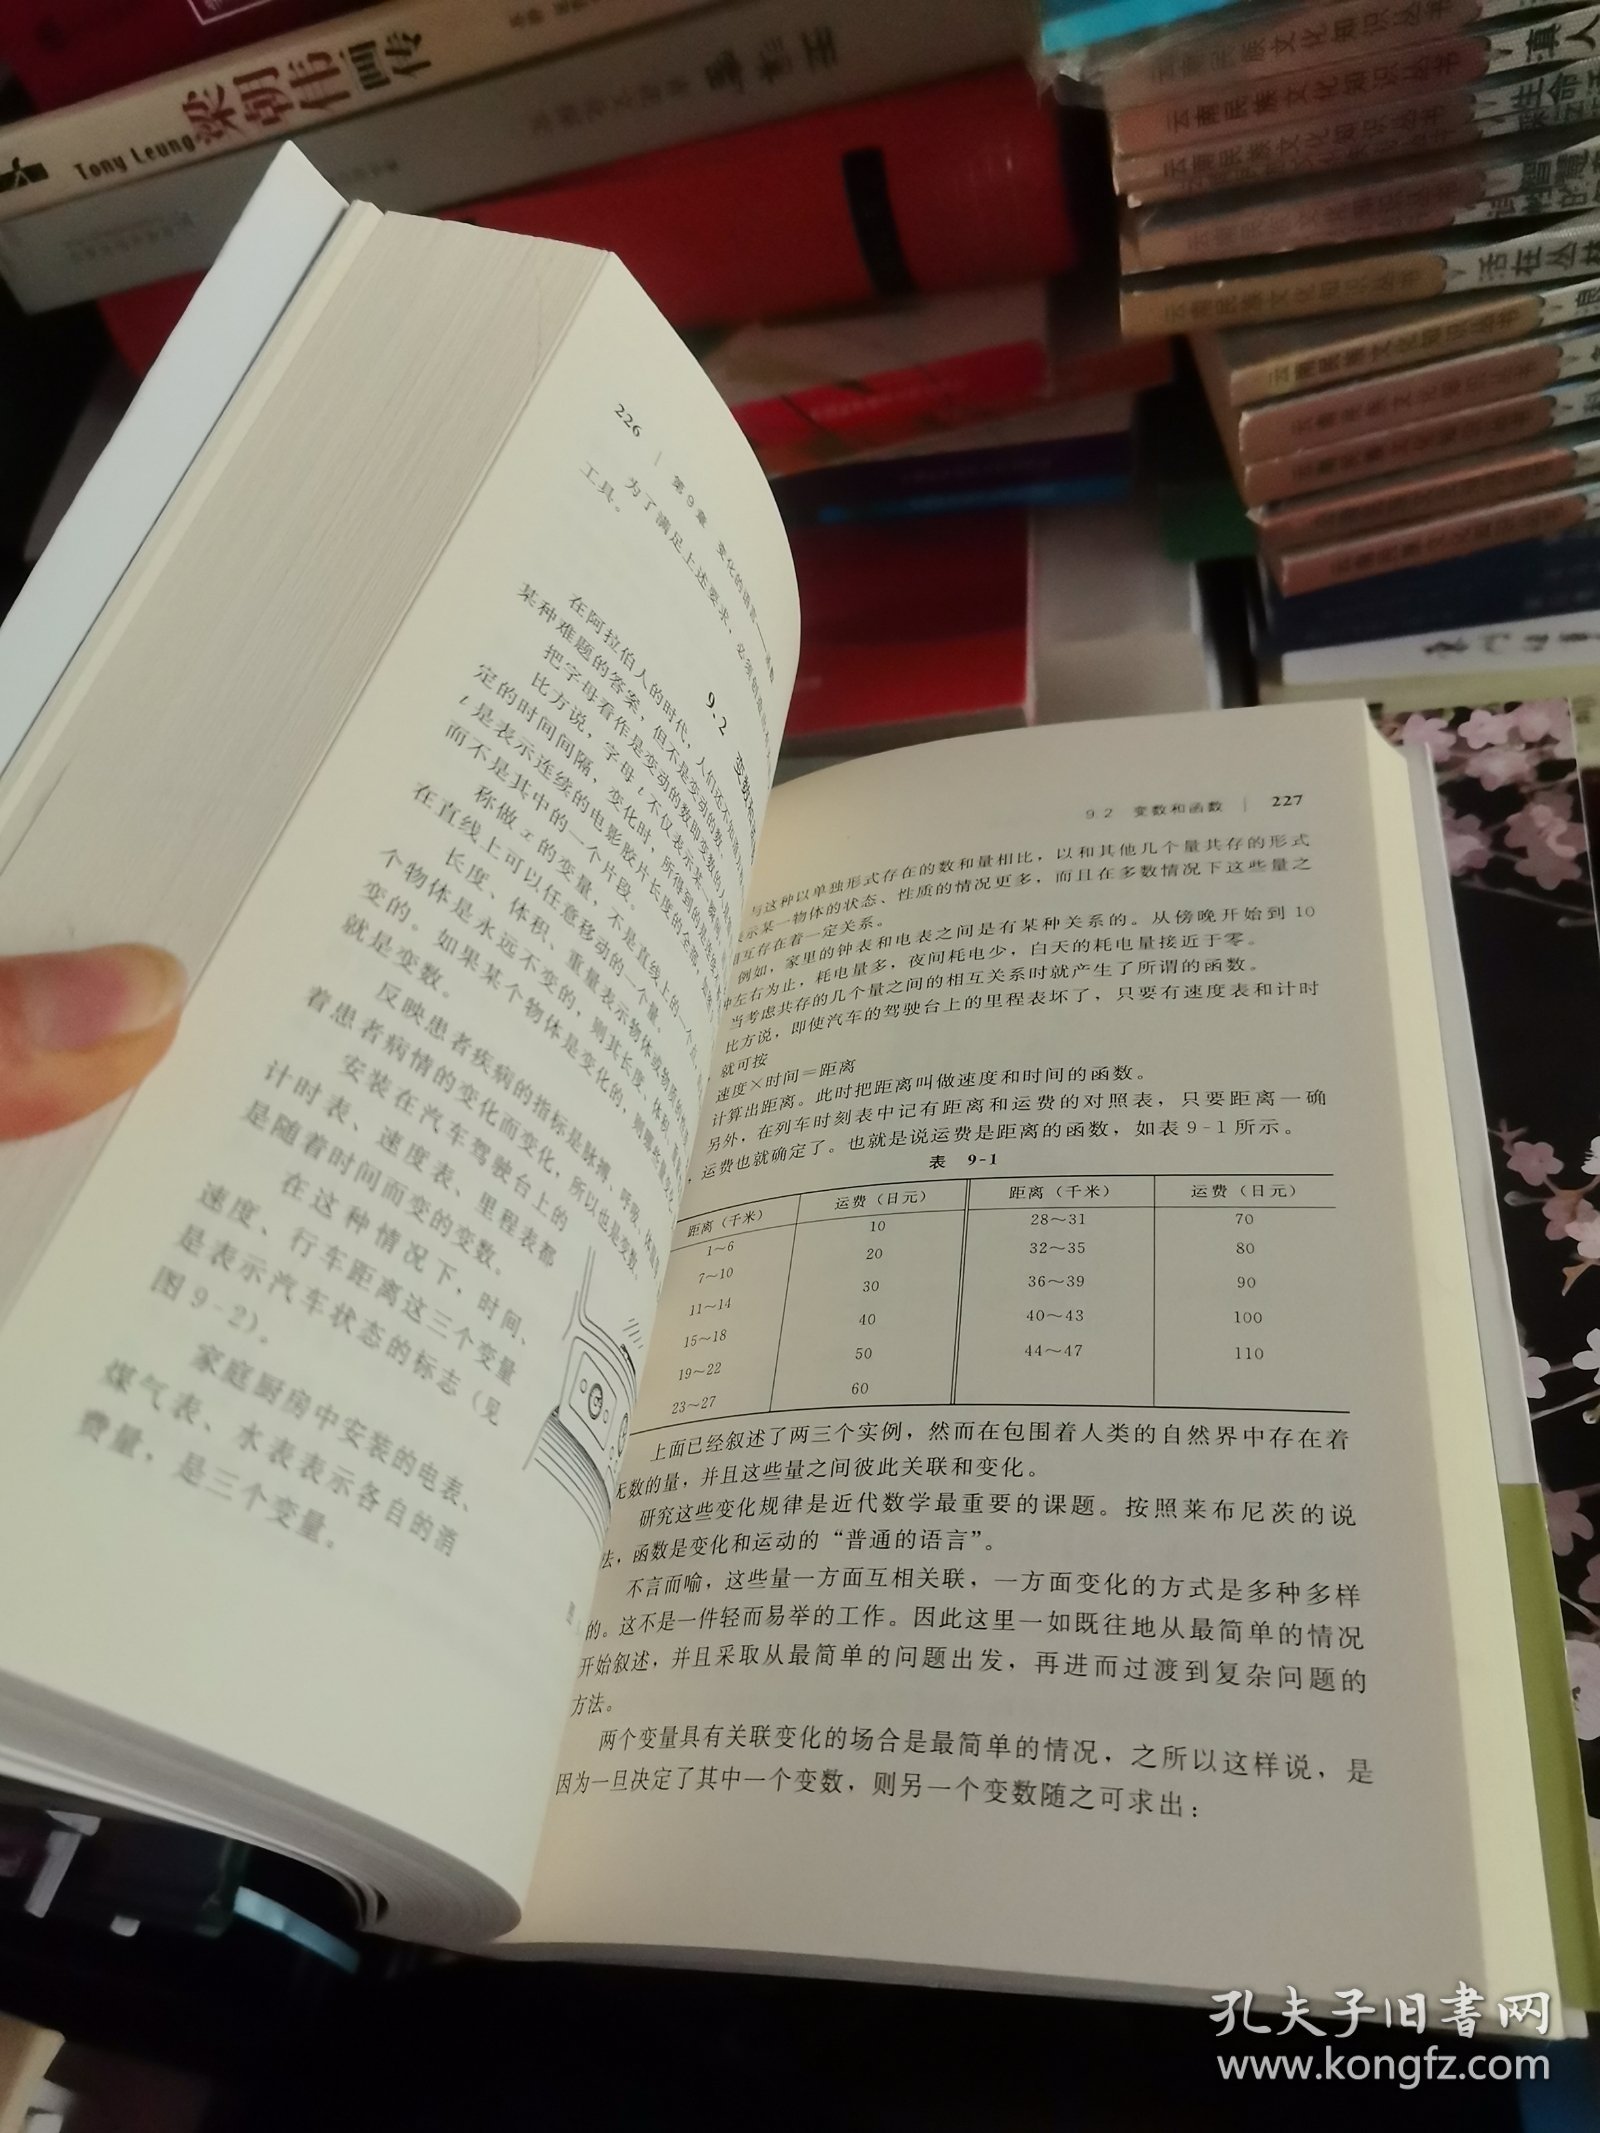 梁朝伟画传
Tony Leung
云南民族文化知识丛书
云南民族文化知识丛书
云南民族文化知识丛书
活在丛林
226 | 第9章 变化的语言——函数
为了满足上述要求,必须创造出
工具。
9.2 变数和函数
在阿拉伯人的时代,人们还不知道
某种难题的答案,但不是变动的数。
把字母看作是变动的数即变数的人
比方说,字母t不仅表示某一瞬间,
定的时间间隔,变化时,所得到的是连续
t是表示连续的电影胶片长度的全部,
而不是其中的一个片段。
称做x的变量,不是直线上的一个点,
在直线上可以任意移动的一个量。
长度、体积、重量表示物体或物质的
个物体是永远不变的,则其长度、体积、重量
变的。如果某个物体是变化的,则哪些量
就是变数。
反映患者疾病的指标是脉搏、呼吸、体温
着患者病情的变化而变化,所以也是变数。
安装在汽车驾驶台上的
计时表、速度表、里程表都
是随着时间而变的变数。
在这种情况下,时间、
速度、行车距离这三个变量
是表示汽车状态的标志(见
图9-2)。
家庭厨房中安装的电表、
煤气表、水表表示各自的消
费量,是三个变量。
9.2 变数和函数 | 227
与这种以单独形式存在的数和量相比,以和其他几个量共存的形式
表示某一物体的状态、性质的情况更多,而且在多数情况下这些量之
相互存在着一定关系。
例如,家里的钟表和电表之间是有某种关系的。从傍晚开始到10
钟左右为止,耗电量多,夜间耗电少,白天的耗电量接近于零。
当考虑共存的几个量之间的相互关系时就产生了所谓的函数。
比方说,即使汽车的驾驶台上的里程表坏了,只要有速度表和计时
就可按
速度×时间=距离
计算出距离。此时把距离叫做速度和时间的函数。
另外,在列车时刻表中记有距离和运费的对照表,只要距离一确
,运费也就确定了。也就是说运费是距离的函数,如表9-1所示。
表 9-1
距离(千米) 运费(日元) 距离(千米) 运费(日元)
1~6 10 28~31 70
7~10 20 32~35 80
11~14 30 36~39 90
15~18 40 40~43 100
19~22 50 44~47 110
23~27 60
上面已经叙述了两三个实例,然而在包围着人类的自然界中存在着
无数的量,并且这些量之间彼此关联和变化。
研究这些变化规律是近代数学最重要的课题。按照莱布尼茨的说
法,函数是变化和运动的“普通的语言”。
不言而喻,这些量一方面互相关联,一方面变化的方式是多种多样
的。这不是一件轻而易举的工作。因此这里一如既往地从最简单的情况
开始叙述,并且采取从最简单的问题出发,再进而过渡到复杂问题的
方法。
两个变量具有关联变化的场合是最简单的情况,之所以这样说,是
因为一旦决定了其中一个变数,则另一个变数随之可求出:
孔夫子旧书网
www.kongfz.com